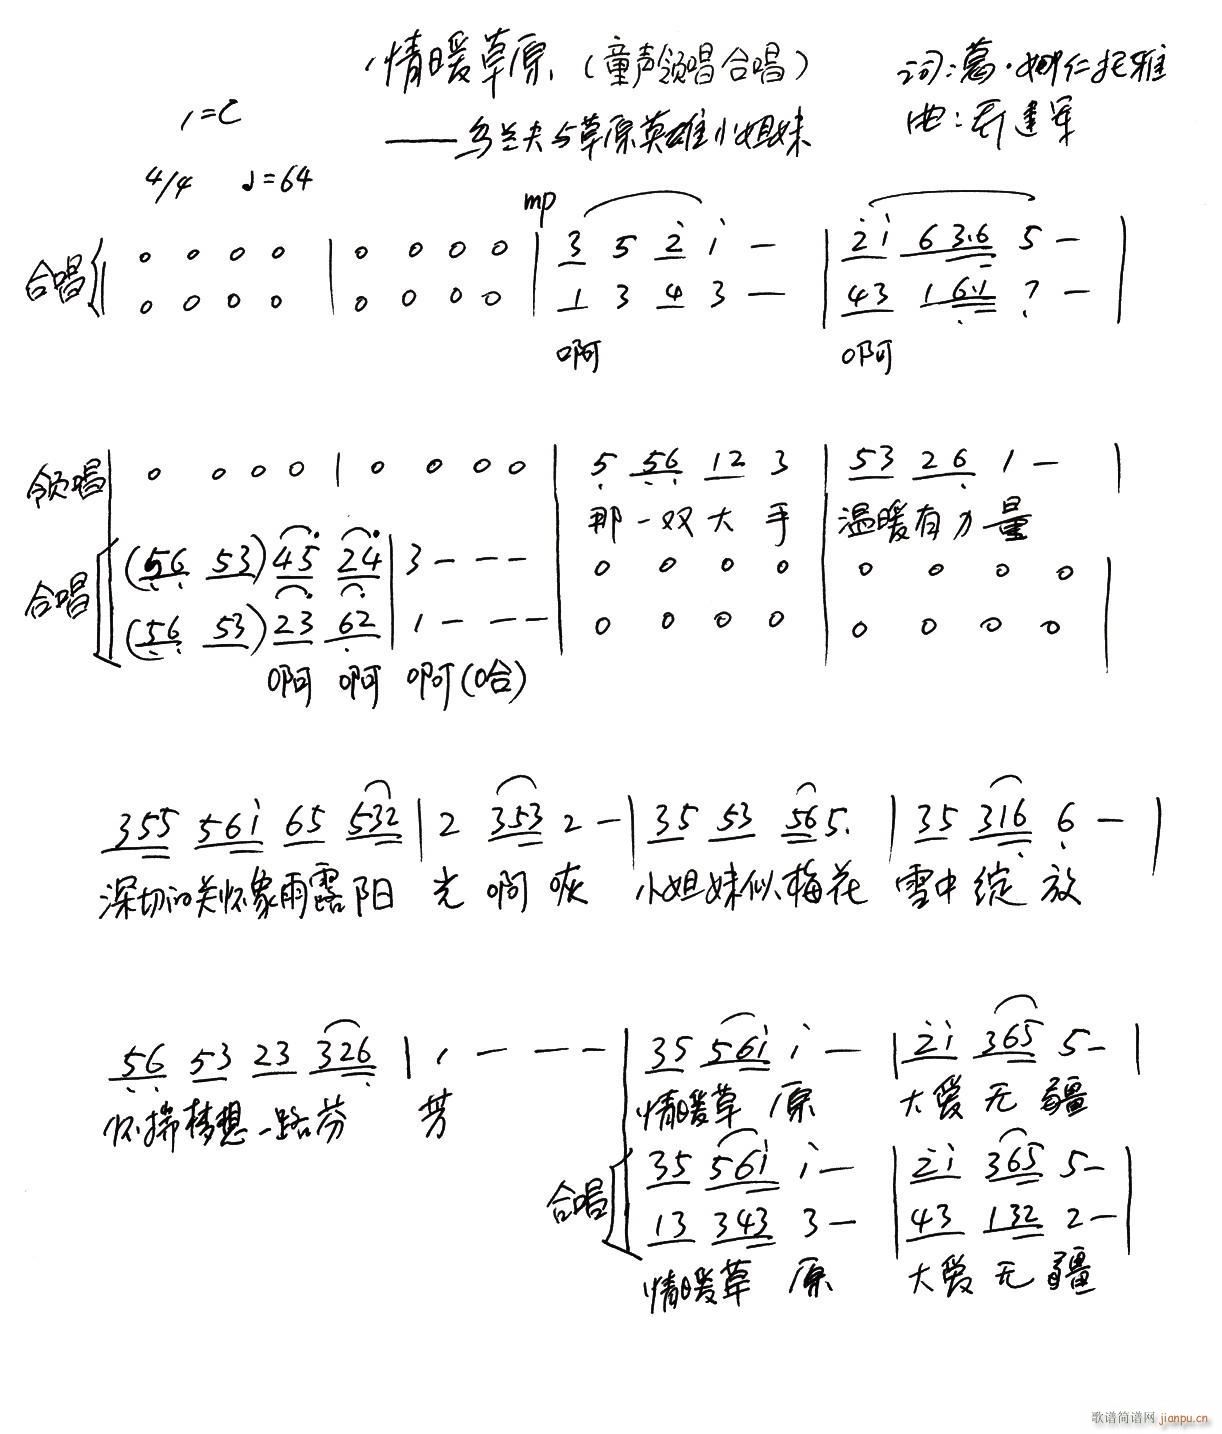 情暖草原（童声领唱合唱）
词：葛·娜仁托雅
1=C
——乌兰夫与草原英雄小姐妹
曲：乔建军
4/4 ♩=64
mp
合唱 0 0 0 0 | 0 0 0 0 | 3 5 2 1 — | 2 1 6 3.6 5 — |
0 0 0 0 | 0 0 0 0 | 1 3 4 3 — | 4 3 1 6.1 7 — |
啊 啊
领唱 0 0 0 0 | 0 0 0 0 | 5 5 6 1 2 3 | 5 3 2 6 1 — |
那一双大手 温暖有力量
合唱 (5 6 5 3) 4 5 2 4 | 3 — — — | 0 0 0 0 | 0 0 0 0 |
(5 6 5 3) 2 3 6 2 | 1 — — — | 0 0 0 0 | 0 0 0 0 |
啊 啊 啊(哈)
3 5 5 5 6 1 6 5 5 3 2 | 2 3 5 3 2 — | 3 5 5 3 5 6 5. | 3 5 3 1 6 6 — |
深切的关怀象雨露阳 光 啊 咴 小姐妹似梅花 雪中绽 放
5 6 5 3 2 3 3 2 6 | 1 — — — | 3 5 5 6 1 1 — | 2 1 3 6 5 5 — |
怀揣梦想一路芬 芳 情暖草 原 大爱无 疆
合唱 3 5 5 6 1 1 — | 2 1 3 6 5 5 — |
1 3 3 4 3 3 — | 4 3 1 3 2 2 — |
情暖草 原 大爱无 疆
歌谱简谱网 jianpu.cn